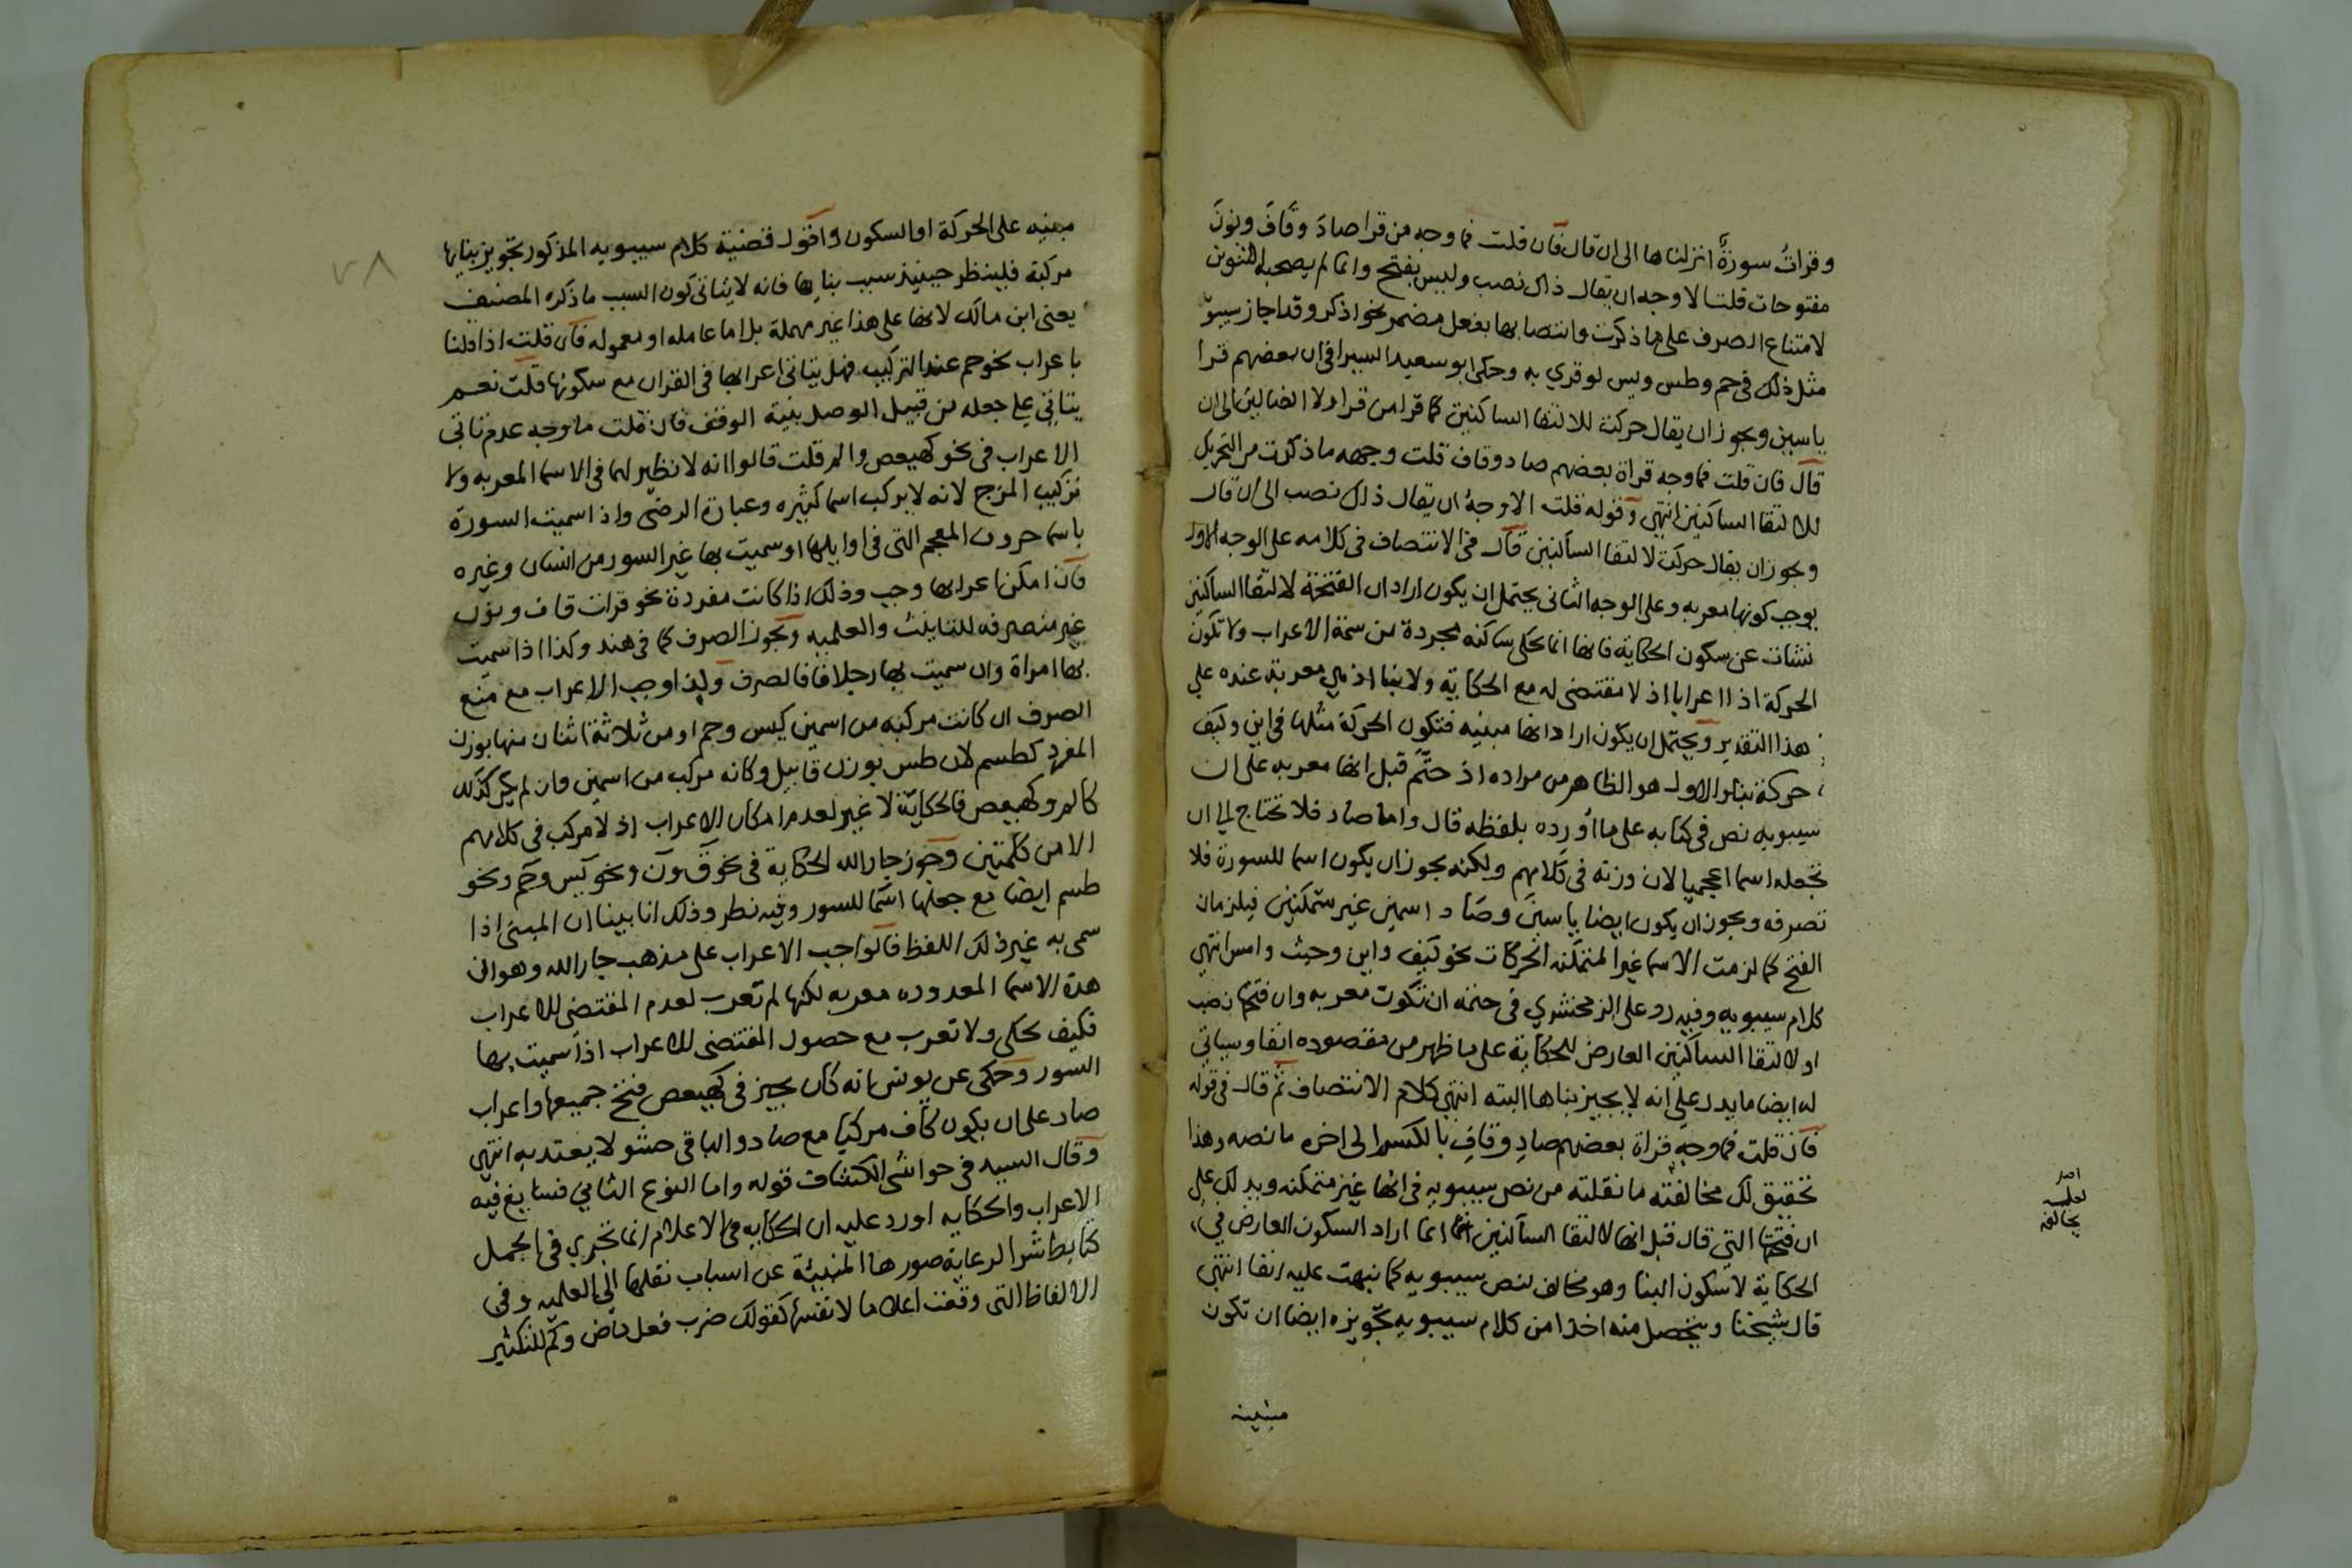 وقرات سورةٌ انزلناها الى ان قال فان قلت فما وجه من قرا صادَ وقافَ ونونَ
مفتوحات قلت الاوجه ان يقال ذاك نصب وليس بفتح وانما لم يصحبه التنوين
لامتناع الصرف على ما ذكرت وانتصابها بفعل مضمر نحو اذكر وقد اجاز سيبو
مثل ذلك في حم وطس ويس لو قري به وحكى ابو سعيد السيرافي ان بعضهم قرا
ياسين ويجوز ان يقال حركت لالتقا الساكنين كما قرا من قرا ولا الضالين الى ان
قال فان قلت فما وجه قراة بعضهم صاد وقاف قلت وجهه ما ذكرت من التحريك
لالتقا الساكنين انتهى وقوله قلت الاوجهُ ان يقال ذلك نصب الى ان قال
ويجوز ان يقال حركت لالتقا الساكنين قال في الانتصاف في كلامه على الوجه الاول
يوجب كونها معربه وعلى الوجه الثانى يحتمل ان يكون اراد ان الفتحة لالتقا الساكنين
نشات عن سكون الحكاية فانها انما تحكى ساكنه مجردة من سمة الاعراب ولا تكون
الحركة اذ ا اعرابا اذ لا مقتضى له مع الحكاية ولا بنا اذ هي معربة عنده علي
هذا التقدير ويحتمل ان يكون اراد انها مبنيه فتكون الحركة مثلها في اين وكيف
حركة بناء والاول هو الظاهر من مراده اذ حتَّم قبل انها معربه على ان
سيبويه نص في كتابه على ما اورده بلفظه قال واما صاد فلا تحتاج الي ان
تجعله اسما اعجميا لان وزنه في كلامهم ولكنه يجوز ان يكون اسما للسورة فلا
تصرفه ويجوز ان يكون ايضا ياسينَ وصَاد اسمين غير متمكنين فيلزمان
الفتح كما لزمت الاسما غير المتمكنه الحركات نحو كيف واين وحيث وامس انتهى
كلام سيبويه وفيه رد على الزمخشري في حتمه ان تكون معربه وان فتحها نصب
او لالتقا الساكنين العارض للحكاية على ما ظهر من مقصوده انفا وسياتي
له ايضا ما يدل علي انه لا يجيز بناها البته انتهى كلام الانتصاف ثم قال في قوله
فان قلت فما وجه قراة بعضهم صادِ وقافِ بالكسر الى اخره ما نصه وهذا
تحقيق لك مخالفته ما نقلته من نص سيبويه في انها غير متمكنه ويدلك علي
ان فتحها التي قال قبل انها لالتقا الساكنين انما اراد السكون العارض في
الحكاية لا سكون البنا وهو مخالف لنص سيبويه كما نبهت عليه انفا انتهى
قال شيخنا ويتحصل منه اخذا من كلام سيبويه تجويزه ايضا ان تكون
مبنيه على الحركة او السكون واقول قضية كلام سيبويه المذكور تجويز بنايها
مركبة فلينظر حينيذ سبب بنايها فانه لا يتاتى كون السبب ما ذكره المصنف
يعنى ابن مالك لانها على هذا غير مهملة بل اما عامله او معموله فان قلت اذا قلنا
باعراب نحو حم عند التركيب فهل يتاتى اعرابها في القران مع سكونها قلت نعم
يتاتي علي جعله من قبيل الوصل بنية الوقف فان قلت ما وجه عدم تاتي
الاعراب في نحو كهيعص والمر قلت قالوا انه لا نظير لهما في الاسما المعربه ولا
تركيب المزج لانه لا يركب اسما كثيره وعبارة الرضى واذا سميت السورة
باسما حروف المعجم التي في اوايلها او سميت بها غير السور من انسان وغيره
فان امكن اعرابها وجب وذلك اذا كانت مفردة نحو قرات قاف ونون
غير منصرفه للتانيث والعلميه ويجوز الصرف كما في هند وكذا اذا سميت
بها امراة وان سميت بها رجلا فالصرف وليذا وجب الاعراب مع منع
الصرف ان كانت مركبه من اسمين كيس وحم او من ثلاثة اثنان منها بوزن
المفرد كطسم لان طس بوزن قابيل وكانه مركب من اسمين وان لم يكن كذلك
كالمر وكهيعص فالحكاية لا غير لعدم امكان الاعراب اذ لا مركب في كلامهم
الا من كلمتين وجوز جار الله الحكاية في نحو ق ون ونحو يس وحم ونحو
طسم ايضا مع جعلها اسما للسور وفيه نظر وذلك انا بينا ان المبنى اذا
سمى به غير ذلك اللفظ فالواجب الاعراب على مذهب جار الله وهو ان
هذه الاسما المعدوده معربه لكنها لم تعرب لعدم المقتضى للاعراب
فكيف تحكى ولا تعرب مع حصول المقتضى للاعراب اذا سميت بها
السور وحكى عن يونس انه كان يجيز في كهيعص فتح جميعها واعراب
صاد على ان يكون كاف مركبا مع صاد والباقي حشو لا يعتد به انتهي
وقال السيد في حواشى الكشاف قوله واما النوع الثاني فسايغ فيه
الاعراب والحكايه اورد عليه ان الحكايه في الاعلام انما تجري في الجمل
كتابط شرا لرعاية صورها المنبئة عن اسباب نقلها الى العلميه وفي
الالفاظ التي وقعت اعلاما لانفسها كقولك ضرب فعل ماض وكم للتكثير